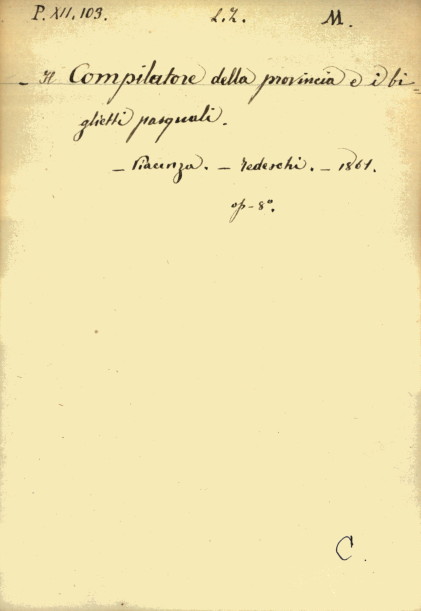 P. XII. 103. L. Z. M.
– Il Compilatore della provincia e i bi-
glietti pasquali.
– Piacenza. – Tedeschi. – 1861.
op – 8º.
C.